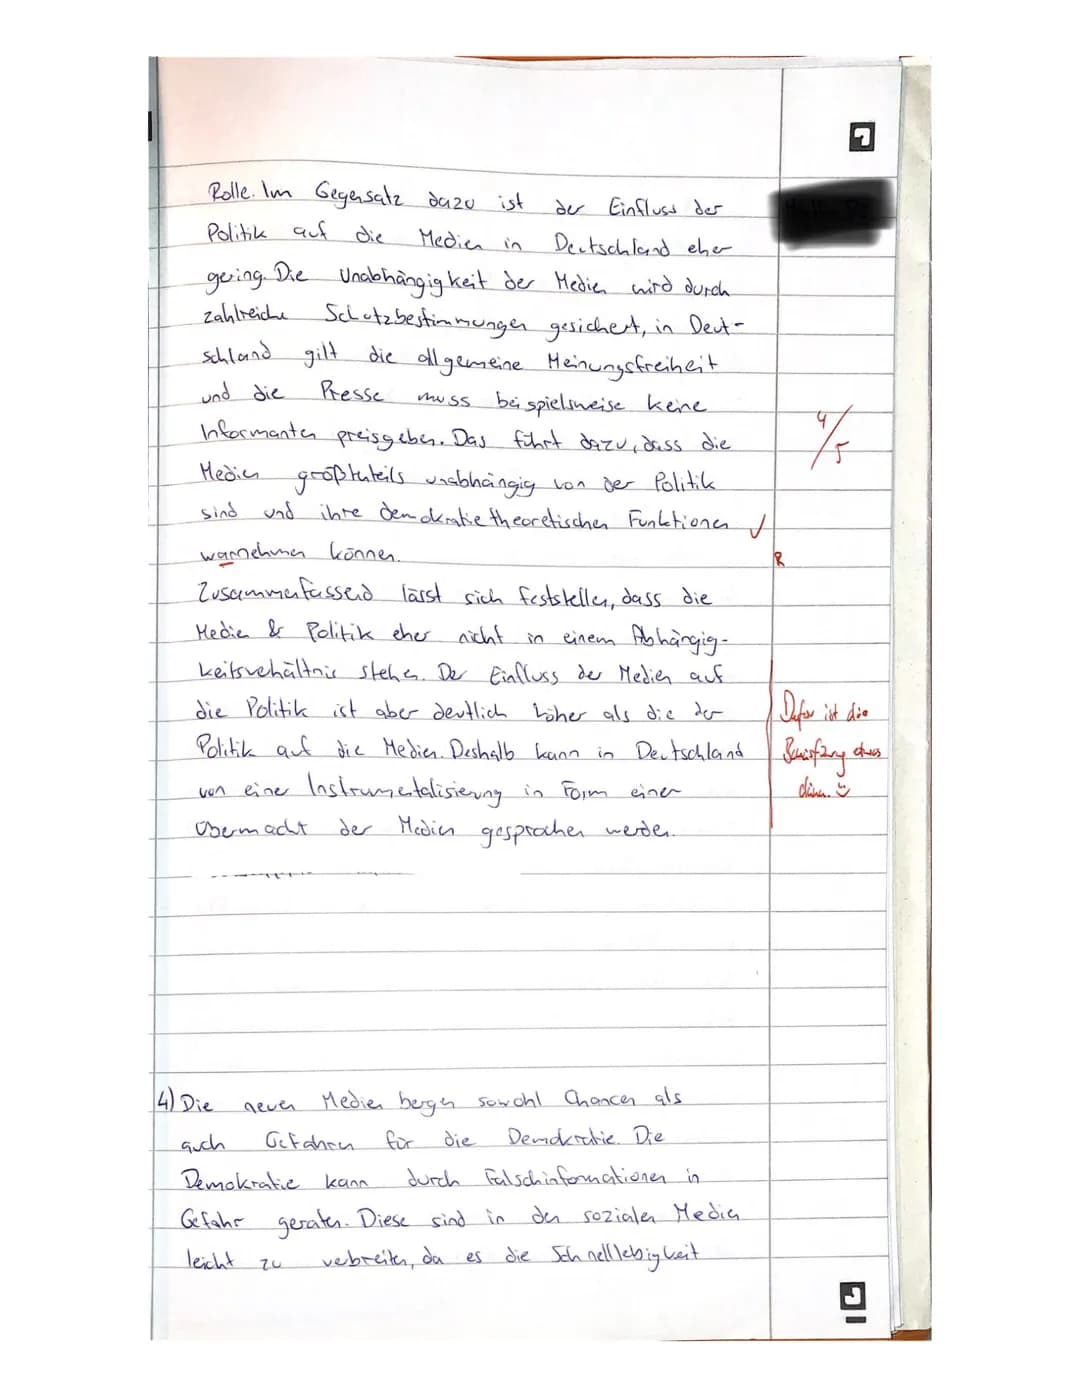 Rolle. Im Gegensatz dazu ist der Einfluss der
Politik auf die Medien in Deutschland eher
gering. Die Unabhängigkeit der Medien wird durch
zahlreiche Schutzbestimmungen gesichert, in Deut-
schland gilt die allgemeine Meinungsfreiheit
und die Presse muss beispielsweise keine
Informanten preisgeben. Das führt dazu, dass die
4/5
Medien größtenteils unabhängig von der Politik
sind und ihre demokratietheoretischen Funktionen ✓
warnehmen können. R
Zusammenfassend lässt sich feststellen, dass die
Medien & Politik eher nicht in einem Abhängig-
keitsverhältnis stehen. Der Einfluss der Medien auf
die Politik ist aber deutlich höher als die der
Politik auf die Medien. Deshalb kann in Deutschland
von einer Instrumentalisierung in Form einer
Übermacht der Medien gesprochen werden.
Dafür ist die
etwas
dünn.
4) Die neuen Medien bergen sowohl Chancen als
auch Gefahren für die Demokratie. Die
Demokratie kann durch Falschinformationen in
Gefahr geraten. Diese sind in den sozialen Medien
leicht zu verbreiten, da es die Schnelllebigkeit